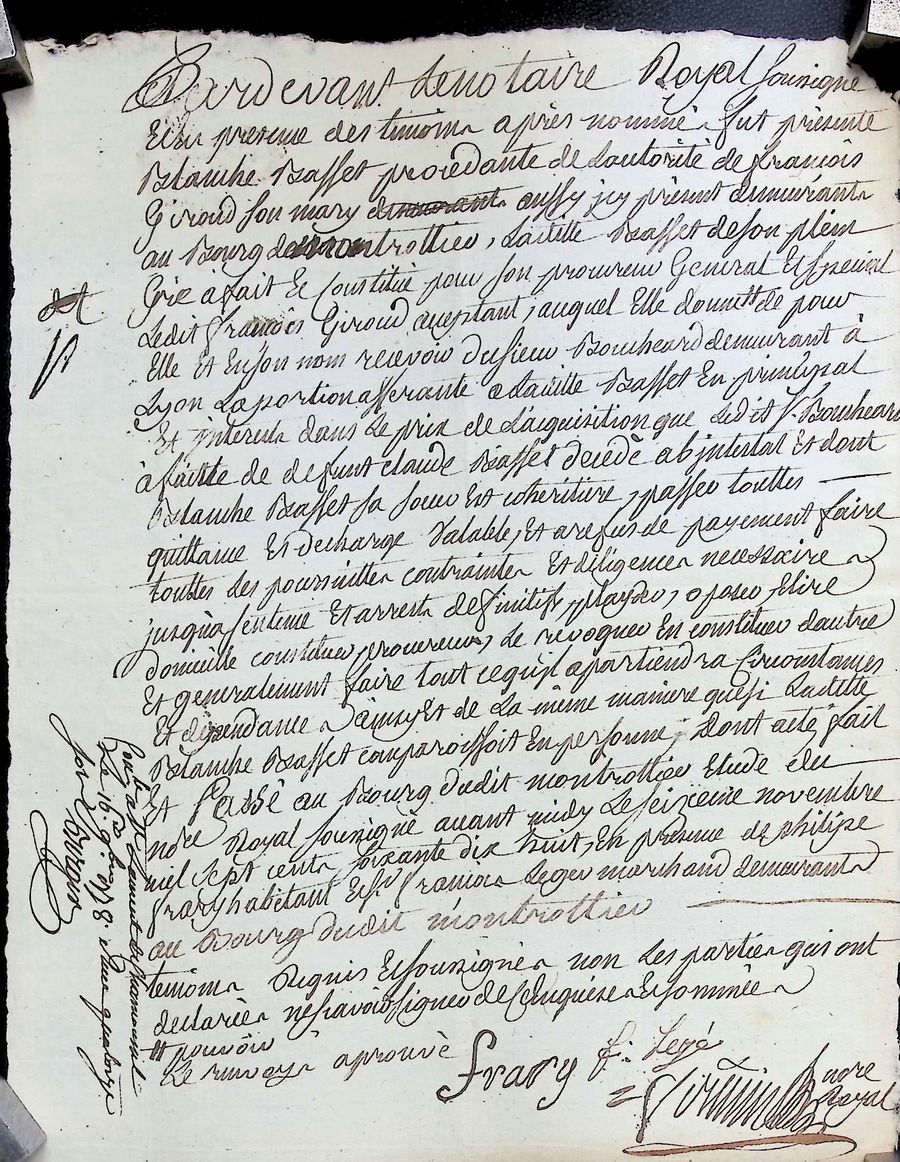 Pardevant Le notaire Royal soussigné
Et En presence des temoins après nommés fut présente
Blanche Basset procédante de Lautorité de françois
Giroud son mary demeurant aussy icy présent demeurants
au Bourg de montrottier, Laditte Basset de son plein
Gré a fait Et Constitué pour son procureur General Et special
Ledit françois Giroud aceptant, auquel Elle donne tt de pour
Elle Et En son nom recevoir du sieur Boucheard demeurant à
Lyon La portion afferante a Laditte Basset En principal
Et interets dans Le prix de L'acquisition que Ledit Sr. Boucheard
à faitte de defunt claude Basset décédé ab intestat Et dont
Blanche Basset sa soeur Est coheritiere, passer touttes
quittance Et decharge Valable, Et a refus de payement faire
touttes Les poursuittes contraintes Et diligences necessaires
jusqu'a sentence Et arrests definitifs, playder, oposer, Elire
domicille constituer procureurs, Le revoquer En constituer dautre
Et generalement faire tout ce quil apartiendra Circonstances
Et dépendances Dainsy Et de La même maniere que si Laditte
Blanche Basset comparoissoit En personne, Dont acte, fait
Et Passé au Bourg dudit montrottier Etude du
nore Royal soussigné avant midy Le seizieme novembre
mil sept cent soixante dix huit, En présence de philipe
frary habitant Et Sr. françois Leger marchand demeurants
au Bourg dudit montrottier
temoins Requis Et soussignés non Les parties qui ont
declarées ne sçavoir signer de ce Enquises Et sommées
tt pouvoir
Le renvoy aprouvé
Frary f: Legé
nore
Royal
Conlé a St Laurent de Chamousset
Le 16 9bre 1778. Reçu quatorze
sols